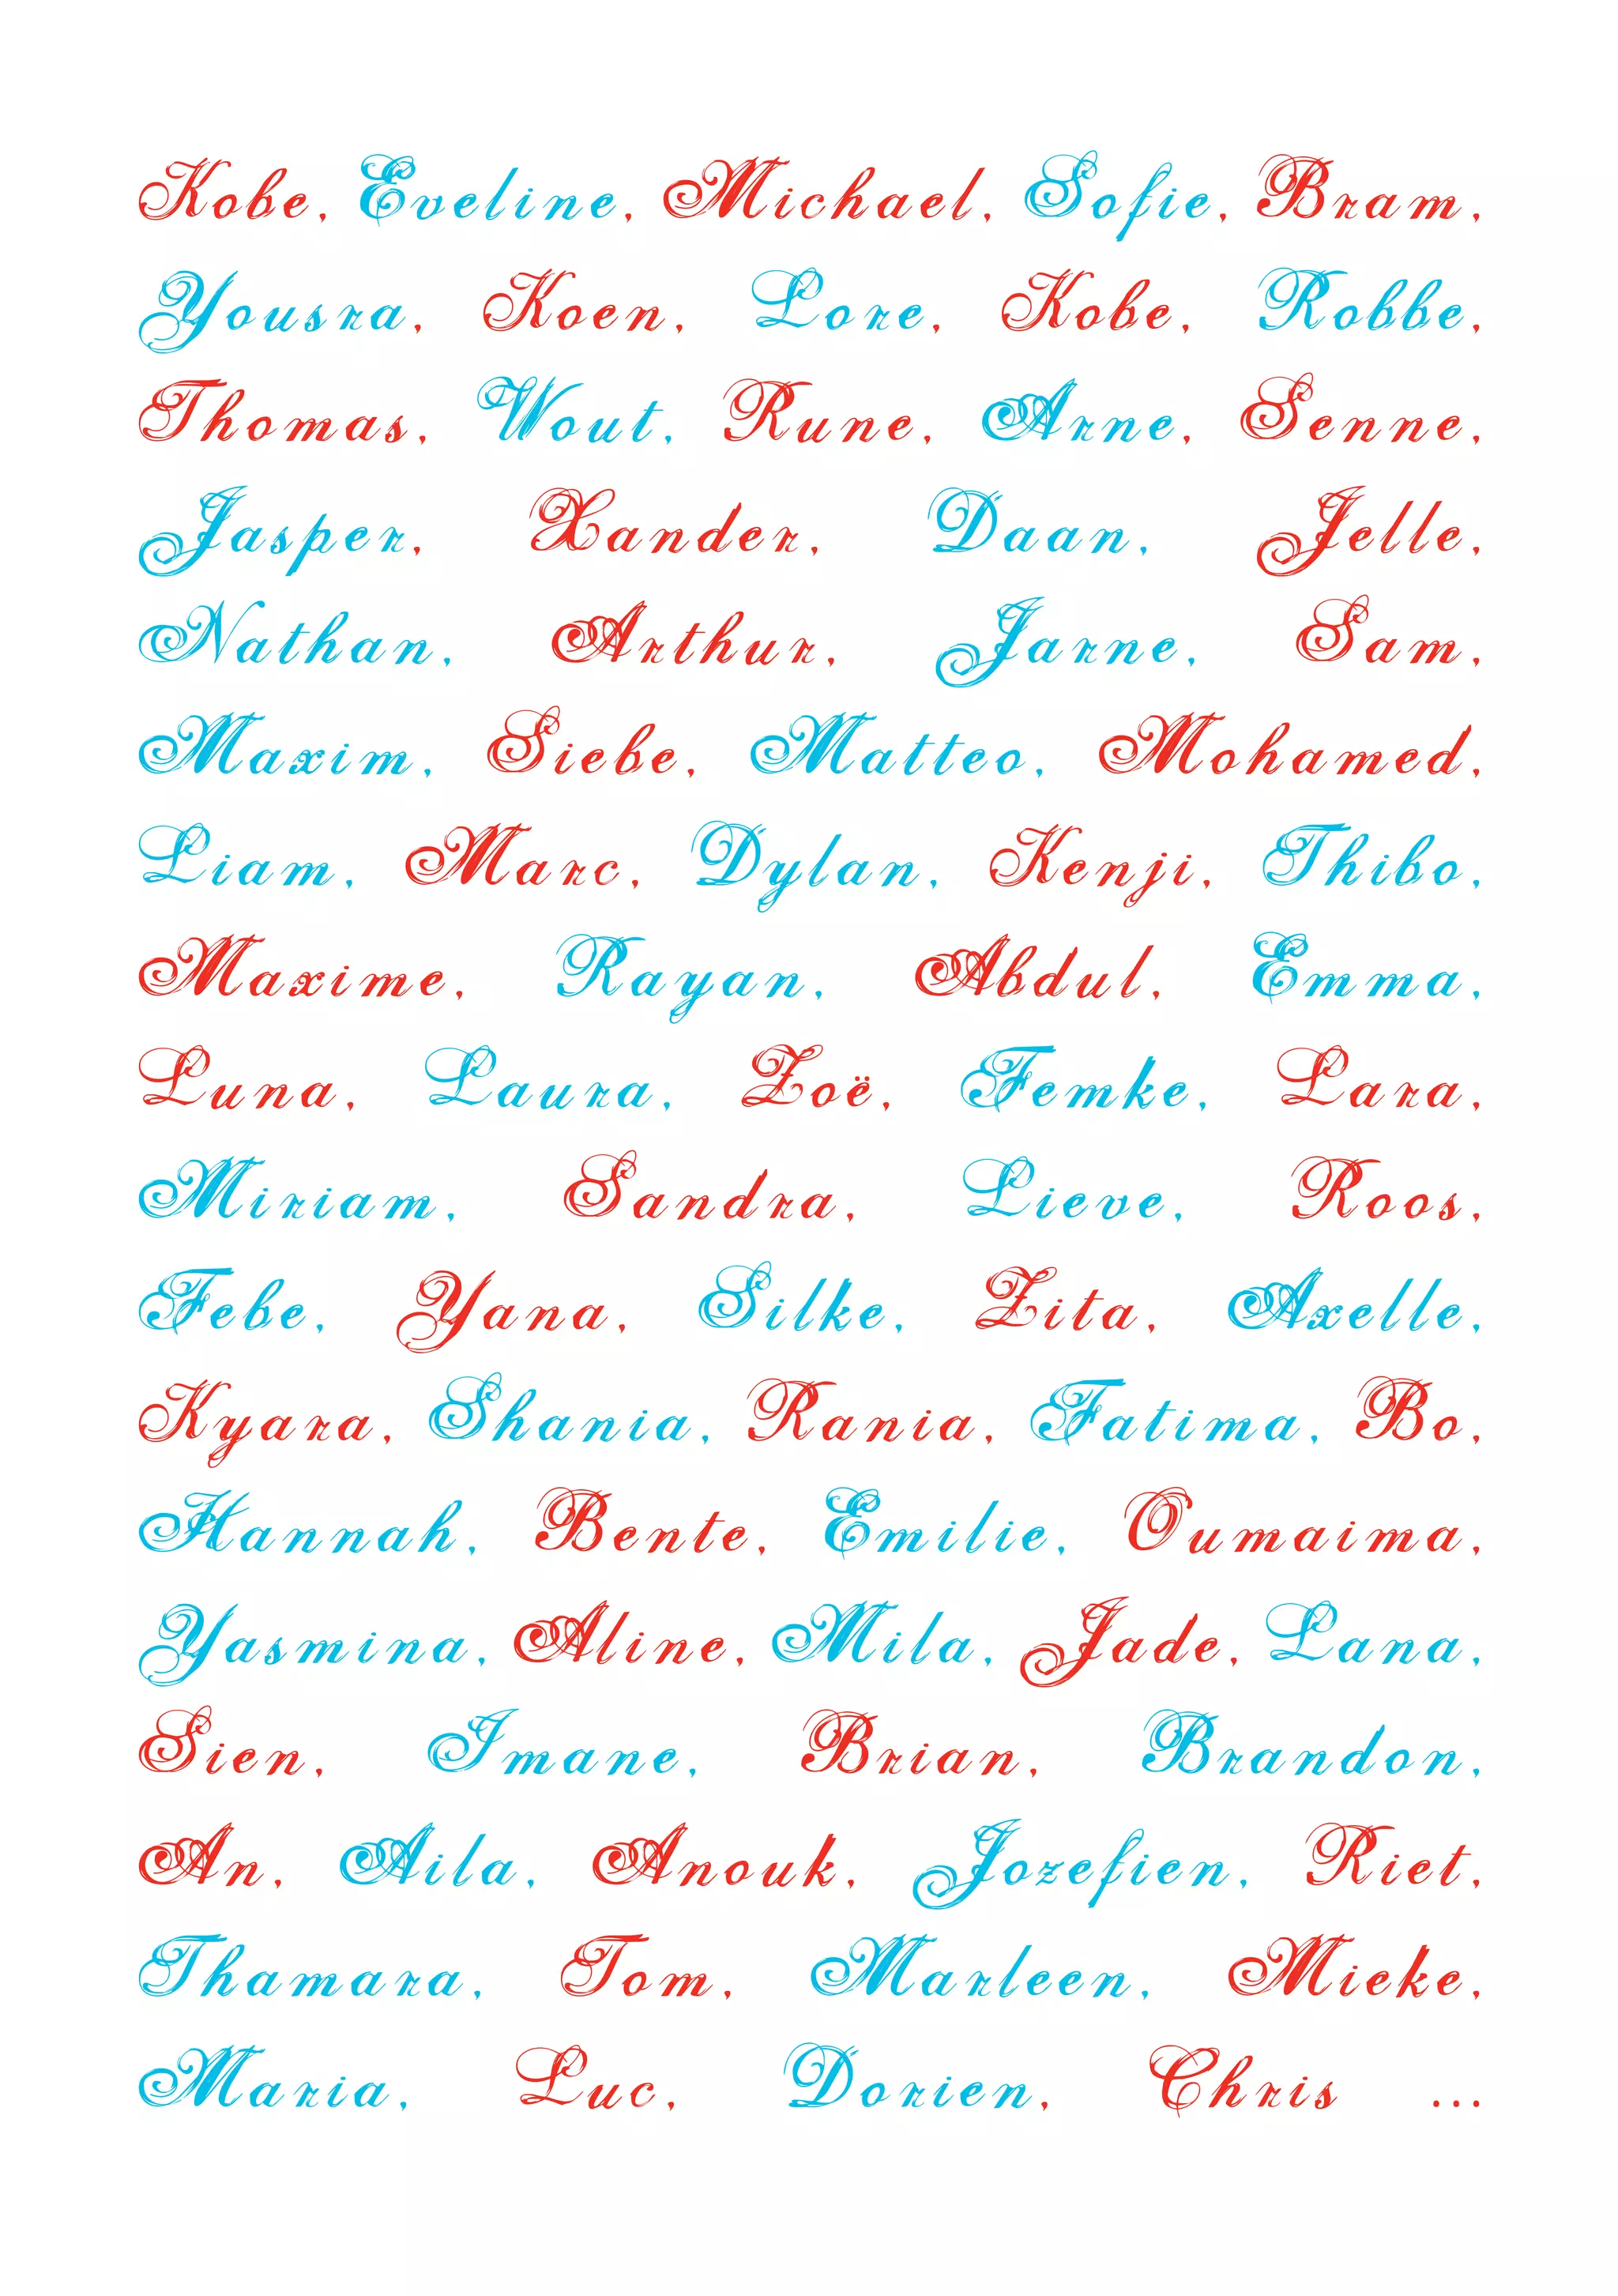 Kobe, Eveline, Michael, Sofie, Bram,
Yousra, Koen, Lore, Kobe, Robbe,
Thomas, Wout, Rune, Arne, Senne,
Jasper, Xander, Daan, Jelle,
Nathan, Arthur, Jarne, Sam,
Maxim, Siebe, Matteo, Mohamed,
Liam, Marc, Dylan, Kenji, Thibo,
Maxime, Rayan, Abdul, Emma,
Luna, Laura, Zoë, Femke, Lara,
Miriam, Sandra, Lieve, Roos,
Febe, Yana, Silke, Zita, Axelle,
Kyara, Shania, Rania, Fatima, Bo,
Hannah, Bente, Emilie, Oumaima,
Yasmina, Aline, Mila, Jade, Lana,
Sien, Imane, Brian, Brandon,
An, Aila, Anouk, Jozefien, Riet,
Thamara, Tom, Marleen, Mieke,
Maria, Luc, Dorien, Chris ...